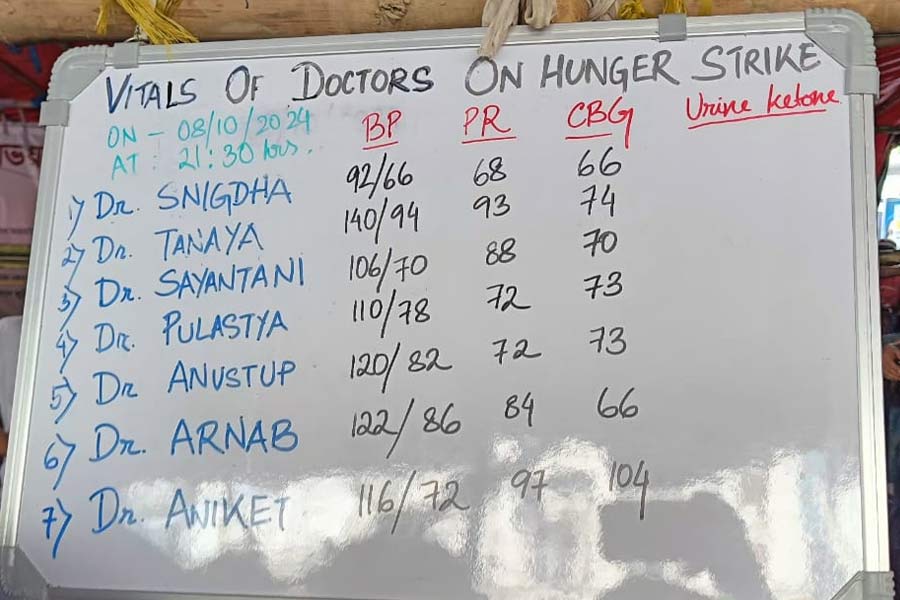 VITALS OF DOCTORS ON HUNGER STRIKE
ON - 08/10/2024 BP PR CBG Urine ketone
AT : 21:30 hrs.
1) Dr. SNIGDHA 92/66 68 66
2) Dr. TANAYA 140/94 93 74
3) Dr. SAYANTANI 106/70 88 70
4) Dr. PULASTYA 110/78 72 73
5) Dr ANUSTUP 120/82 72 73
6) Dr. ARNAB 122/86 84 66
7) Dr. ANIKET 116/72 97 104